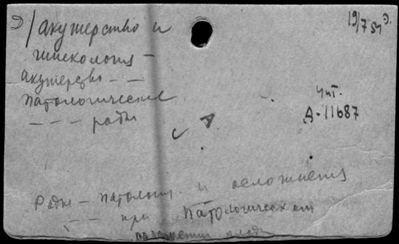 Э) / Акушерство и
гинекология -
Акушерство - -
Патологические
- - - роды
19/7 51 Э.
Чит.
А-11687
Роды - патолог. и осложнения
- - при патологическом